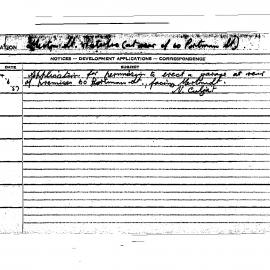 ATION
St. Waterloo (at rear of 60 Portman St).
NOTICES — DEVELOPMENT APPLICATIONS — CORRESPONDENCE
DATE SUBJECT
Application for permission to erect a garage at rear
6 of premises 60 Portman St., facing
57 N.